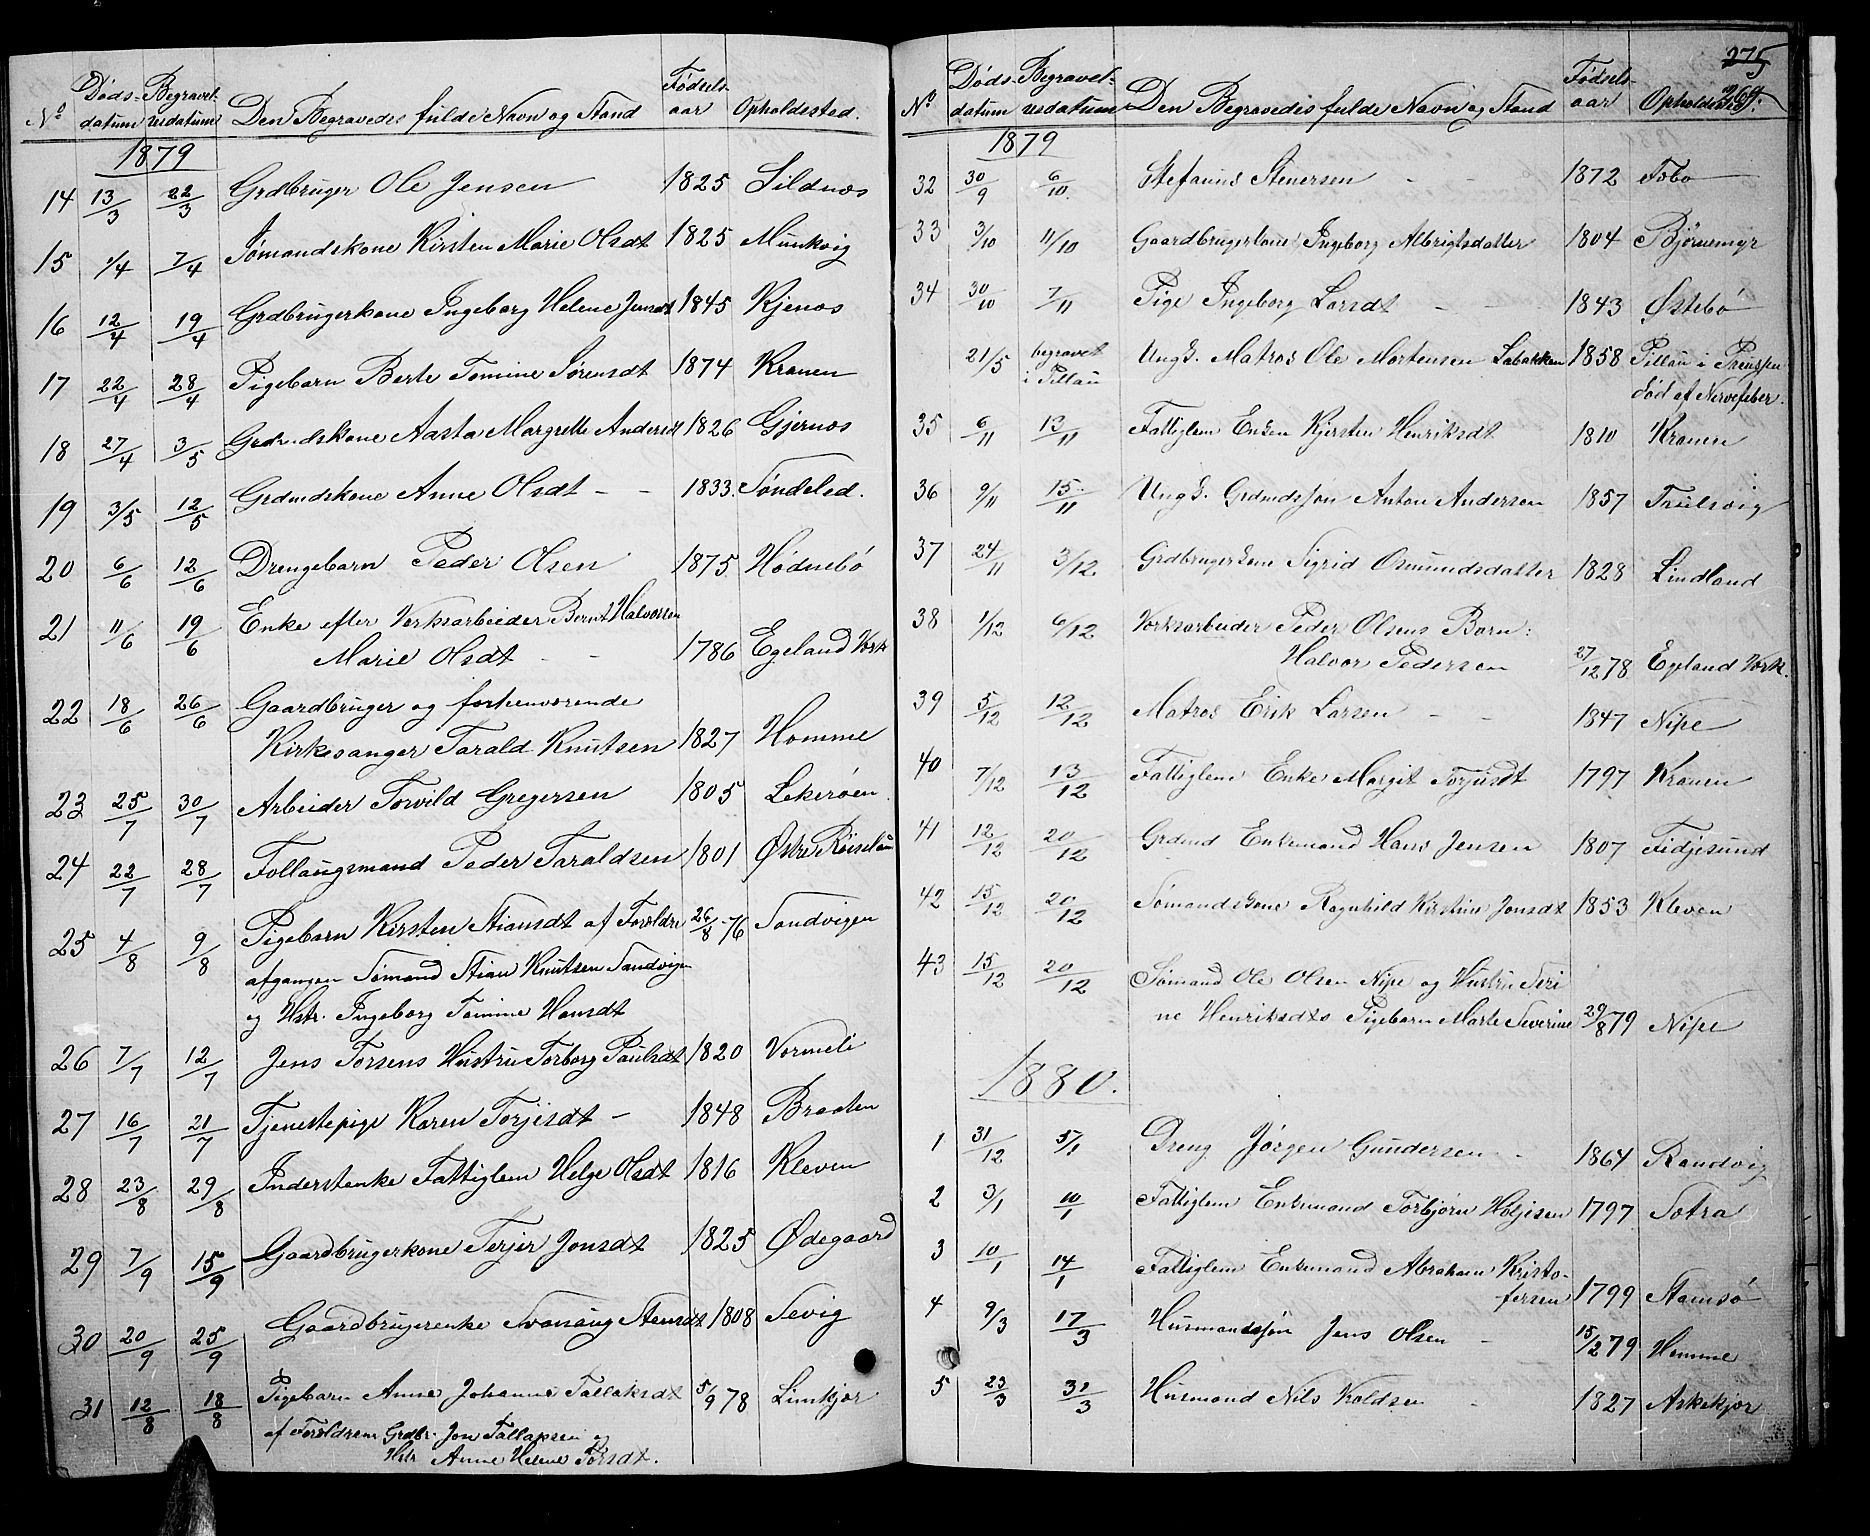 No Døds- datum Begravel- sesdatum Den Begravedes fulde Navn og Stand Fødsels- aar Opholdssted.
1879
14 13/3 22/3 Grdbruger Ole Jensen 1825 Sildnæs
15 1/4 7/4 Sømandskone Kirsten Marie Olsdt 1825 Munkvig
16 12/4 19/4 Grdbrugerkone Ingeborg Helene Jensdt 1845 Kjenæs
17 22/4 28/4 Pigebarn Berte Tomine Sørensdt 1874 Kranen
18 27/4 3/5 Grdmdskone Aasta Margrethe Andersdt 1826 Gjernæs
19 3/5 12/5 Grdmdskone Anne Olsdt - - 1833. Søndeled.
20 6/6 12/6 Drengebarn Peder Olsen 1875 Hødnebø
21 11/6 19/6 Enke efter Verksarbeider Bernt Halvorsen
Marie Olsdt - - 1786 Egeland Værk
22 18/6 26/6 Gaardbruger og forhenværende
Kirkesanger Tarald Knutsen 1827 Homme
23 25/7 30/7 Arbeider Torvild Gregersen 1805 Lekerøen
24 22/7 28/7 Follaugsmand Peder Taraldsen 1801 Østre Röiseland
25 4/8 9/8 Pigebarn Kirsten Stiansdt af Forældre 26/8 -76 Sandvigen
afgangen Sømand Stian Knutsen Sandvigen
og Hstr. Ingeborg Tomine Hansdt
26 7/7 12/7 Jens Torsens Hustru Torborg Paulsdt 1820 Vormeli
27 16/7 21/7 Tjenestepige Karen Torjusdt - 1848 Braaten
28 23/8 29/8 Inderstenke Fattiglem Helge Olsdt 1816 Kleven
29 7/9 15/9 Gaardbrugerkone Terjer Jonsdt 1825 Ødegaard
30 20/9 25/9 Gaardbrugerenke Svanaug Stensdt 1808 Sevig
31 12/8 18/8 Pigebarn Anne Johanne Tallaksdt 5/9 78 Limkjær
af Forældrene Grdbr. Jon Tallaksen og
Hstr Anne Helene Torsdt.
275
269.
No Døds- datum Begravel- sesdatum Den Begravedes fulde Navn og Stand Fødsels- aar Opholdssted.
1879
32 30/9 6/10. Stefanus Stenersen - - 1872 Føbo
33 3/10 11/10 Gaardbrugerkone Ingeborg Albrigtsdatter 1804 Bjørnemyr
34 30/10 7/11 Pige Ingeborg Larsdt - - 1843 Østebø
21/5 begravet i Pillau Ungk. Matros Ole Mortensen Labakken 1858 Pillau i Preussen
død af Nervefeber.
35 6/11 13/11 Fattiglem Enken Kjersten Henriksdt 1810 Kranen
36 9/11 15/11 Ungk. Grdmdssøn Anton Andersen 1857 Trulsvig
37 24/11 3/12 Grdbrugerkone Sigrid Osmundsdatter 1828 Lindland
38 1/12 6/12 Værksarbeider Peder Olsens Barn:
Halvor Pedersen 27/12 78 Egeland Værk.
39 5/12 12/12 Matros Erik Larsen - - 1847 Nipe
40 7/12 13/12 Fattiglem Enke Margit Torjusdt 1797 Kranen
41 12/12 20/12 Grdmd Enkemand Hans Jensen 1807 Fidjesund
42 15/12 20/12 Sømandskone Ragnhild Kirstine Jonsdt 1853 Kleven
43 15/12 20/12 Sømand Ole Olsen Nipe og Hustru Seri
ne Henriksdts Pigebarn Marte Severine 29/8 79 Nipe
1880.
1 31/12 5/1 Dreng Jørgen Gundersen - 1864 Sandvig
2 3/1 10/1 Fattiglem Enkemand Torbjørn Holjesen 1797 Sotra
3 10/1 14/1 Fattiglem Enkemand Abraham Kristo-
fersen 1799 Stamsø
4 9/3 17/3 Husmandssøn Jens Olsen - 15/2 79 Homme
5 23/3 31/3 Husmand Nils Koldsen - 1827 Askekjær